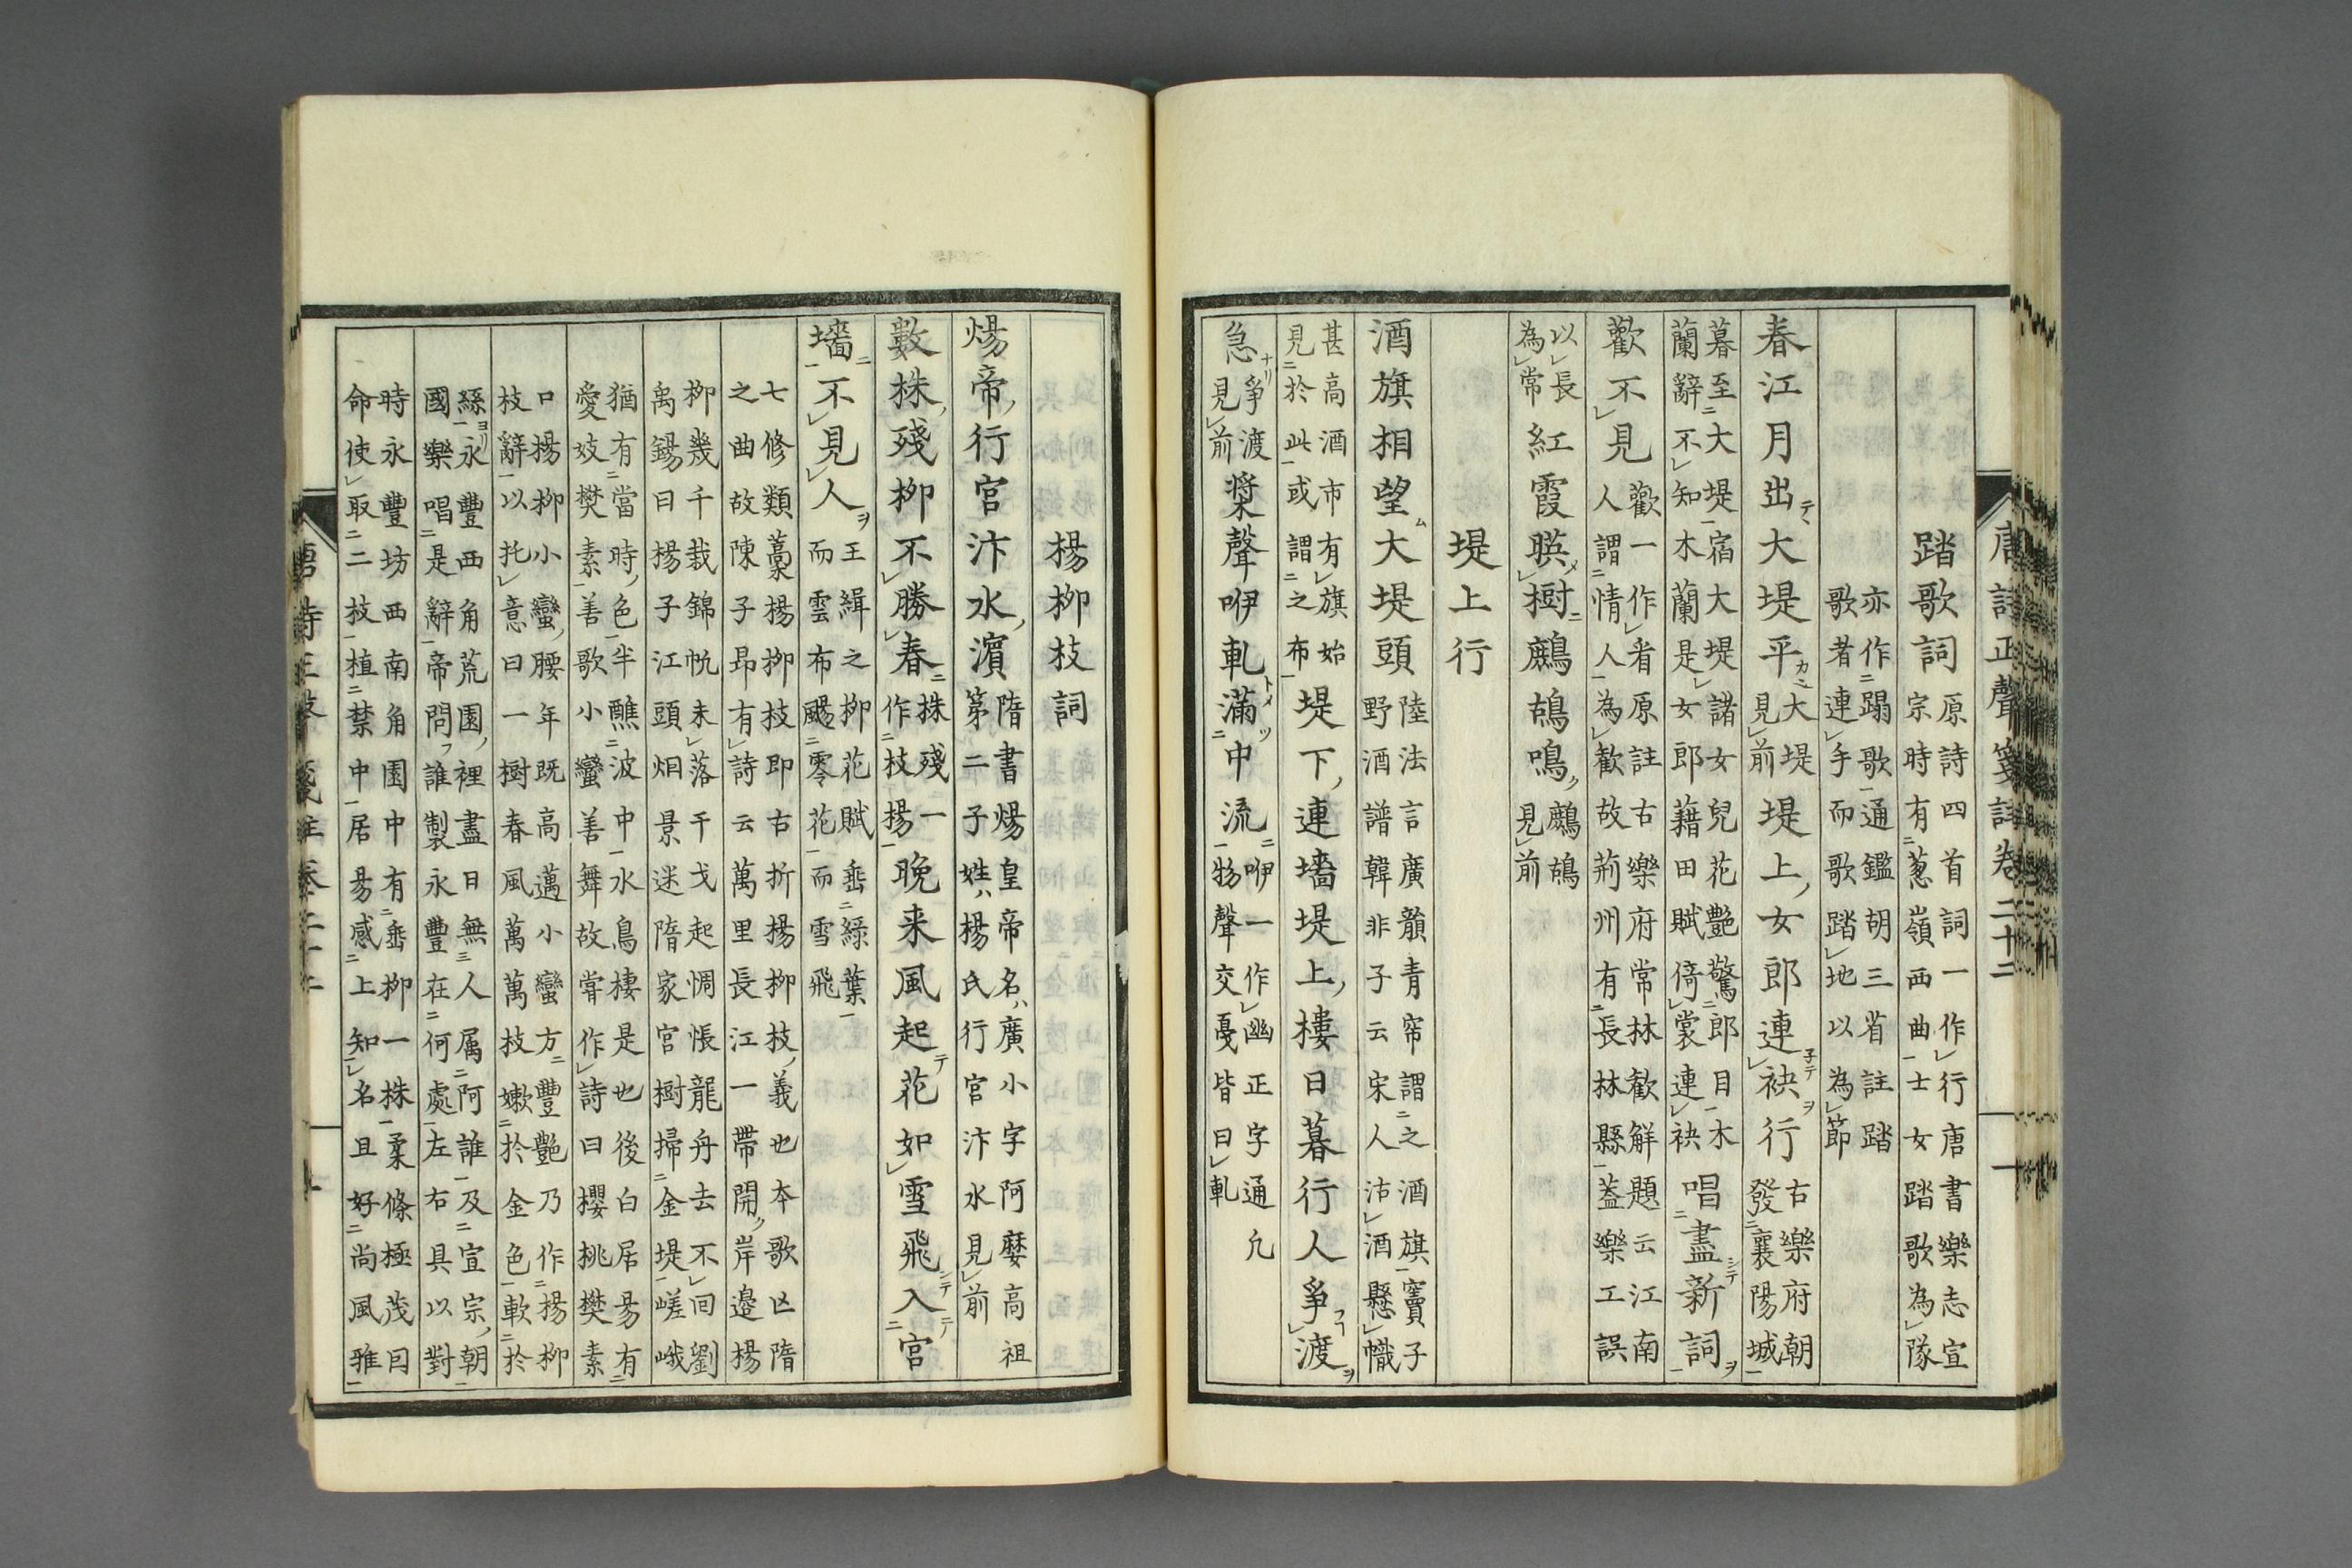 唐詩正聲箋註卷二十二 一
踏歌詞 原詩四首詞一作行唐書樂志宣宗時有葱嶺西曲士女踏歌為隊
亦作蹋歌通鑑胡三省註踏歌者連手而歌踏地以為節
春江月出テ大堤平カニ 大堤見前 堤上女郎連袂ヲ行 古樂府朝發襄陽城
暮至大堤宿大堤諸女兒花艷驚郎目木蘭辭不知木蘭是女郎藉田賦倚裳連袂 唱盡シテ新詞ヲ
歡不見 歡一作看原註古樂府常林歡解題云江南人謂情人為歡故荊州有長林縣蓋樂工誤
以長為常 紅霞暎樹鷓鴣鳴 鷓鴣見前
堤上行
酒旗相望ム大堤頭 陸法言廣韻青帘謂之酒旗竇子野酒譜韓非子云宋人沽酒懸幟
甚高酒市有旗始見於此或謂之布 堤下連墻堤上樓日暮行人爭渡ヲ
急ナリ 爭渡見前 槳聲咿軋滿中流 咿一作幽正字通凡物聲交戛皆曰軋
楊柳枝詞
煬帝行宮汴水濱 隋書煬皇帝名ハ廣小字阿㜑高祖第二子姓ハ楊氏行宮汴水見前
數株殘柳不勝春 株殘一作枝楊 晚来風起テ花如雪飛シテ入宮
墻不見人ヲ 王緝之柳花賦垂綠葉而雲布颺零花而雪飛
七修類藁楊柳枝即古折楊柳枝義也本歌亡隋之曲故陳子昂有詩云萬里長江一帶開岸邊楊
柳幾千栽錦帆未落干戈起惆悵龍舟去不回劉禹錫曰楊子江頭烟景迷隋家宮樹掃金堤嵯峨
猶有當時色半醮波中水鳥棲是也後白居易有愛妓樊素善歌小蠻善舞故甞作詩曰櫻桃樊素
口楊柳小蠻腰年既高邁小蠻方豐艷乃作楊柳枝辭以托意曰一樹春風萬萬枝嫩於金色軟於
絲永豐西角荒園裡盡日無人属阿誰及宣宗朝國樂唱是辭帝問誰製永豐在何處左右具以對
時永豐坊西南角園中有垂柳一株柔條極茂因命使取二枝植禁中居易感上知名且好尚風雅
唐詩正聲箋註卷二十二